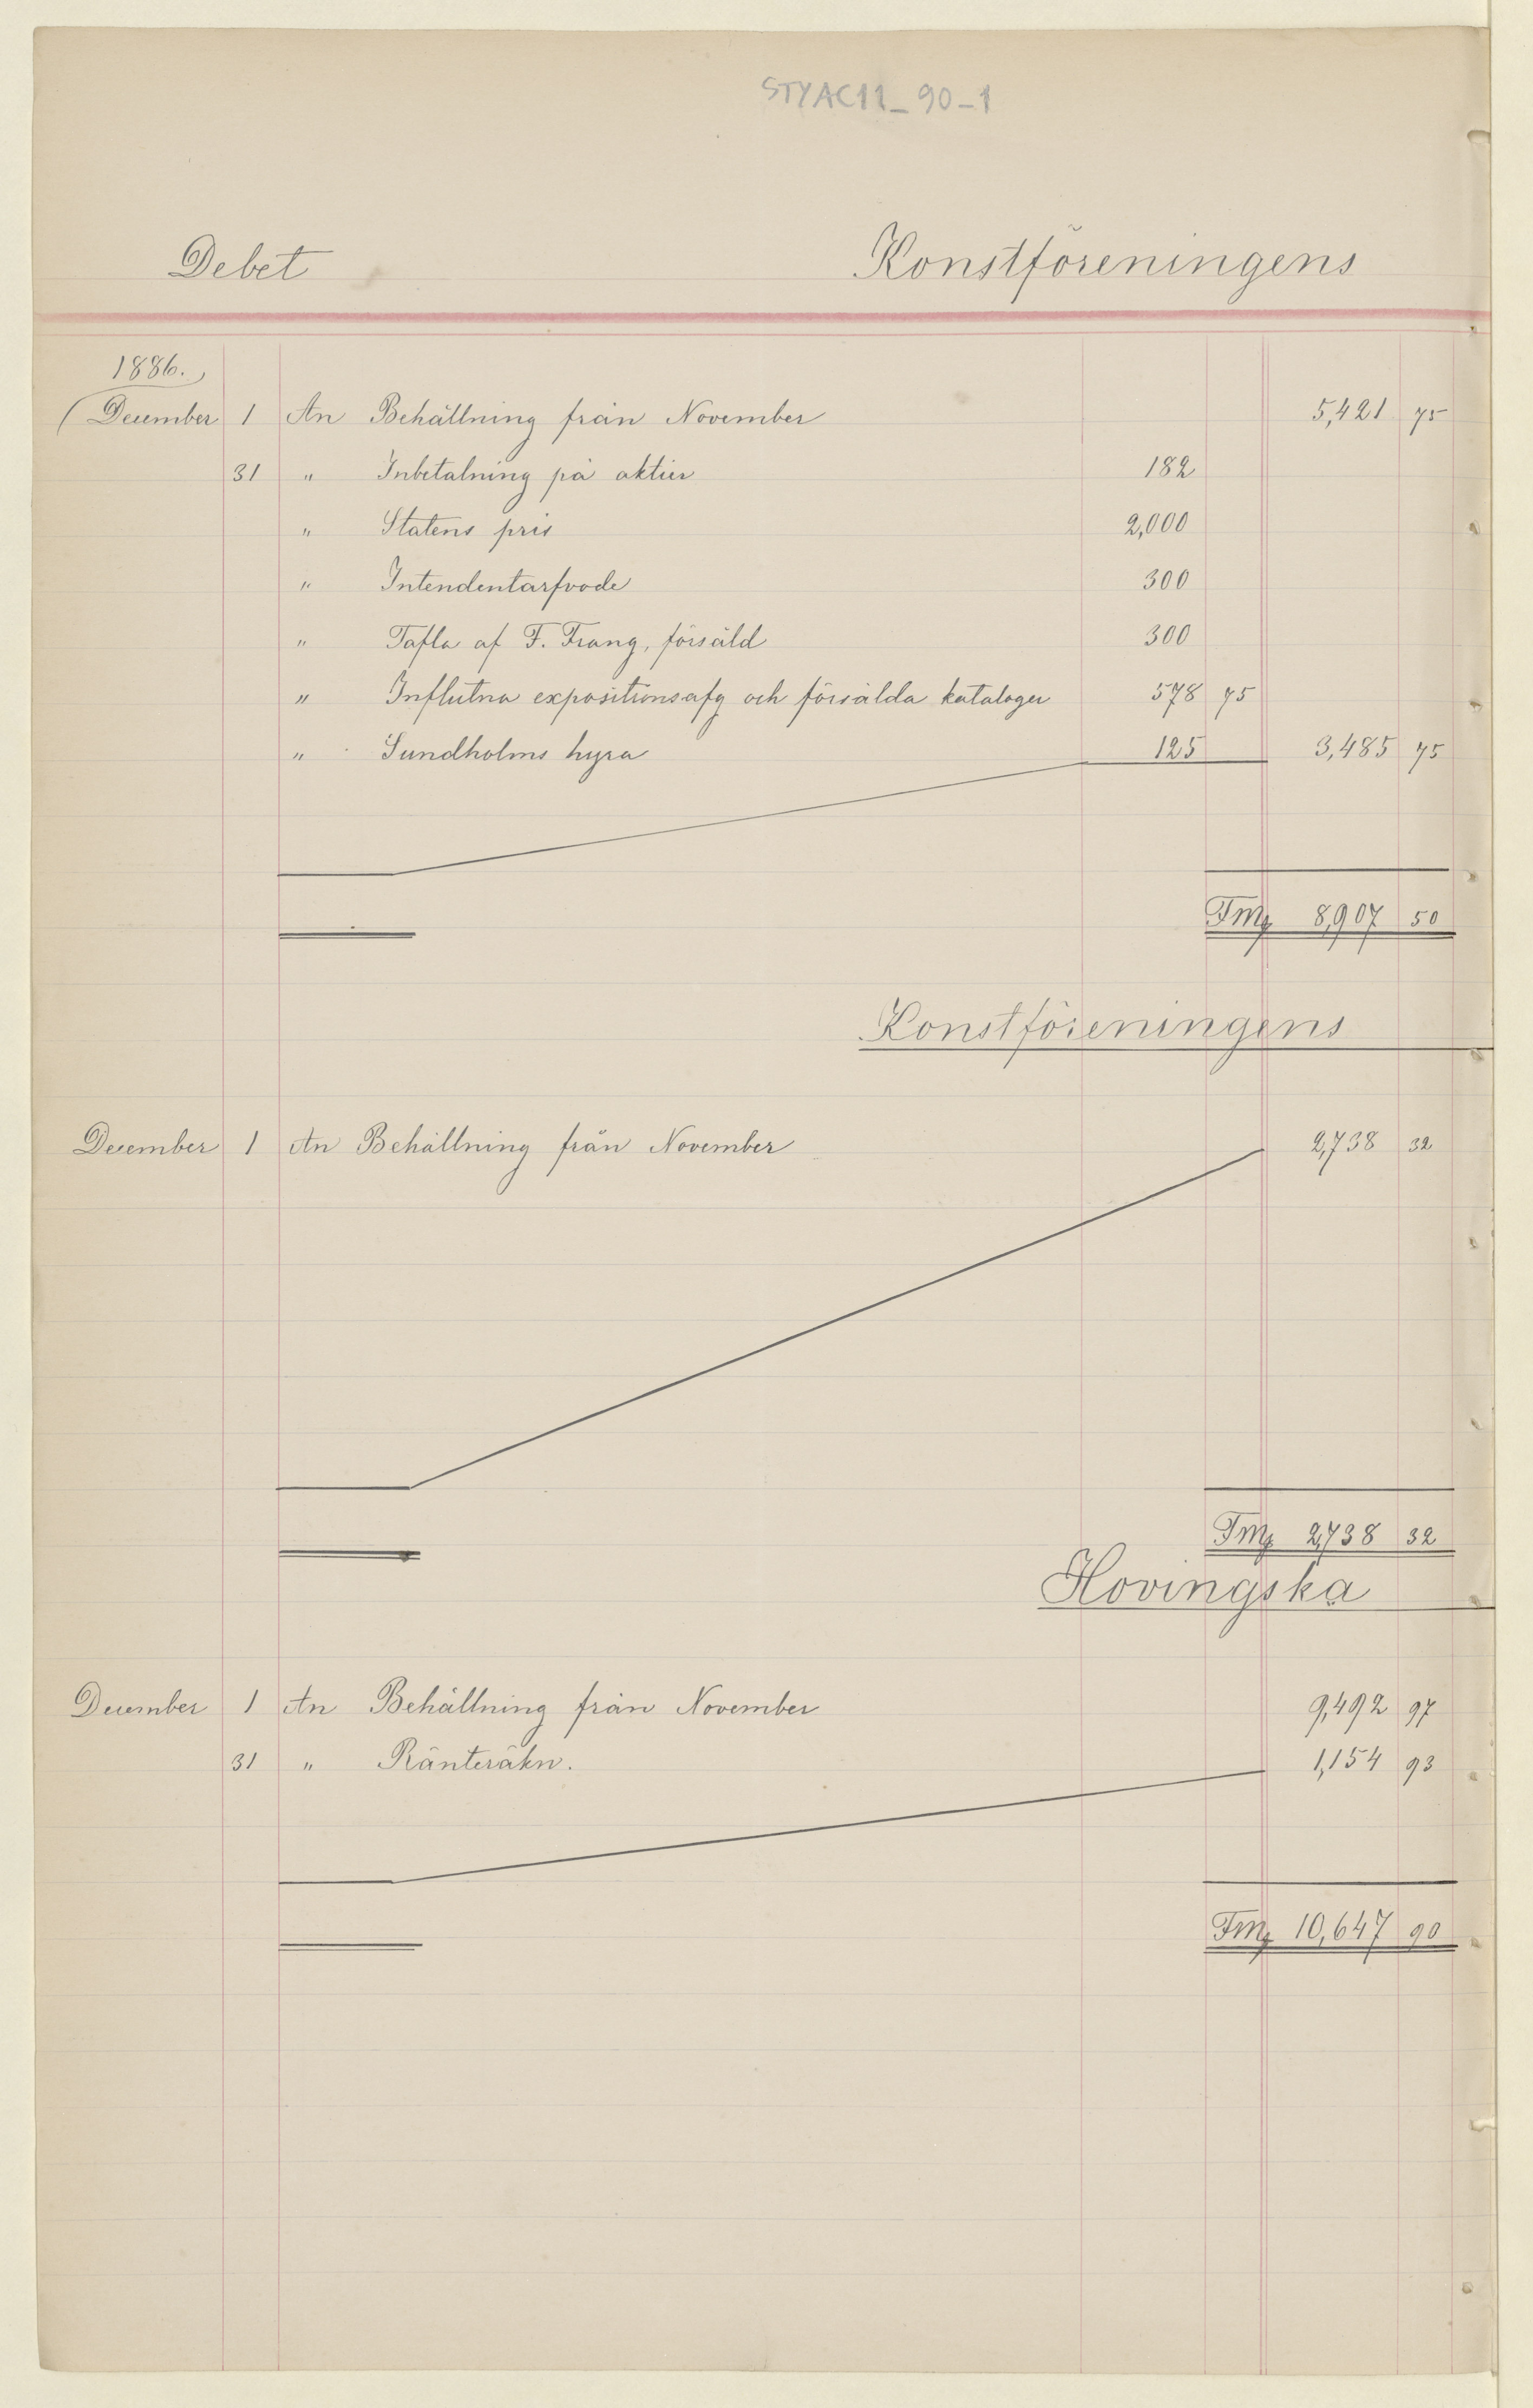 STYAC11_90-1
Debet Konstföreningens
1886.
December 1 An Behållning från November 5,421 75
31 " Inbetalning på aktier 182
" Statens pris 2,000
" Intendentarfvode 300
" Tafla af F. Frang, försåld 300
" Influtna expositionsafg och försålda kataloger 578 75
" Sundholms hyra 125 3,485 75
Fmk 8,907 50
Konstföreningens
December 1 An Behållning från November 2,738 32
Fmk 2,738 32
Hovingska
December 1 An Behållning från November 9,492 97
31 " Ränteräkn. 1,154 93
Fmk 10,647 90